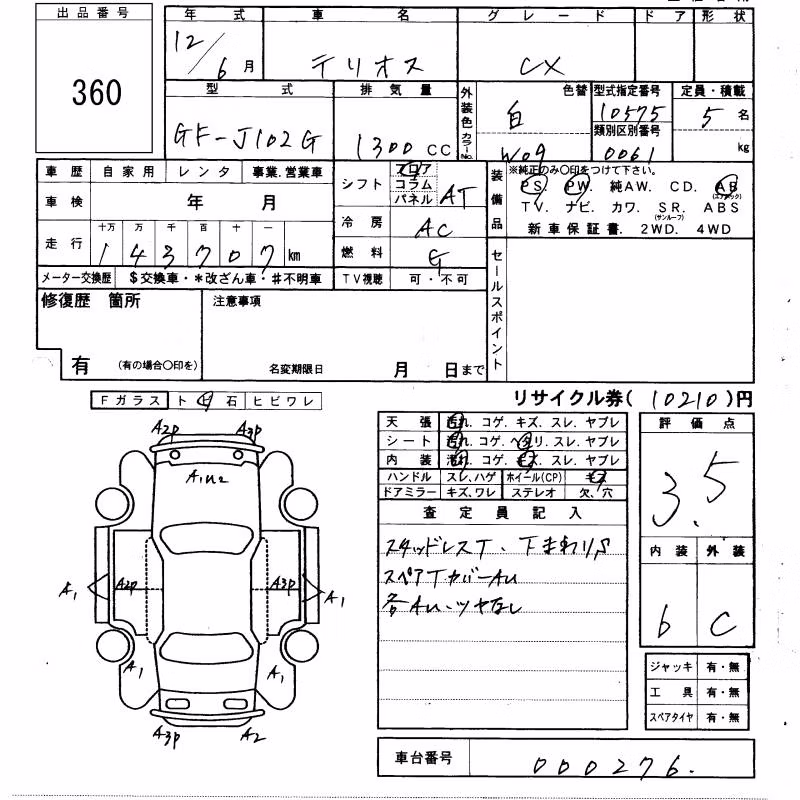 出品番号
360
年式 車名 グレード ドア 形状
12/6月 テリオス CX
型式 排気量 外装色 色替 型式指定番号 定員・積載
GF-J102G 1300CC 白 10575 5名
カラーNo. W09 類別区別番号 0061 kg
車歴 自家用 レンタ 事業.営業車
車検 年 月
走行 十万 万 千 百 十 一
1 4 3 7 0 7 km
メーター交換歴 $交換車・*改ざん車・#不明車
シフト フロア コラム パネル AT
冷房 AC
燃料 G
TV視聴 可・不可
装備品
※純正のみ〇印をつけて下さい。
PS. PW. 純AW. CD. AB(エアバック)
TV. ナビ. カワ. SR.(サンルーフ) ABS
新車保証書. 2WD. 4WD
修復歴 箇所
有 (有の場合〇印を)
注意事項
名変期限日 月 日まで
セールスポイント
リサイクル券(10210)円
Fガラス ト 石 ヒビワレ
A2p A3p
A1 U2
A1 A2p A3p A1
A1 A1
A3p A2
天張 汚れ. コゲ. キズ. スレ. ヤブレ
シート 汚れ. コゲ. ヘタリ. スレ. ヤブレ
内装 汚れ. コゲ. キズ. スレ. ヤブレ
ハンドル スレ.ハゲ ホイール(CP) キズ
ドアミラー キズ.ワレ ステレオ 欠.穴
査定員記入
スタッドレスT. 下まわりS
スペアTカバーAU
各AU.ツヤなし
評価点
3.5
内装 外装
b C
ジャッキ 有・無
工具 有・無
スペアタイヤ 有・無
車台番号 000276.